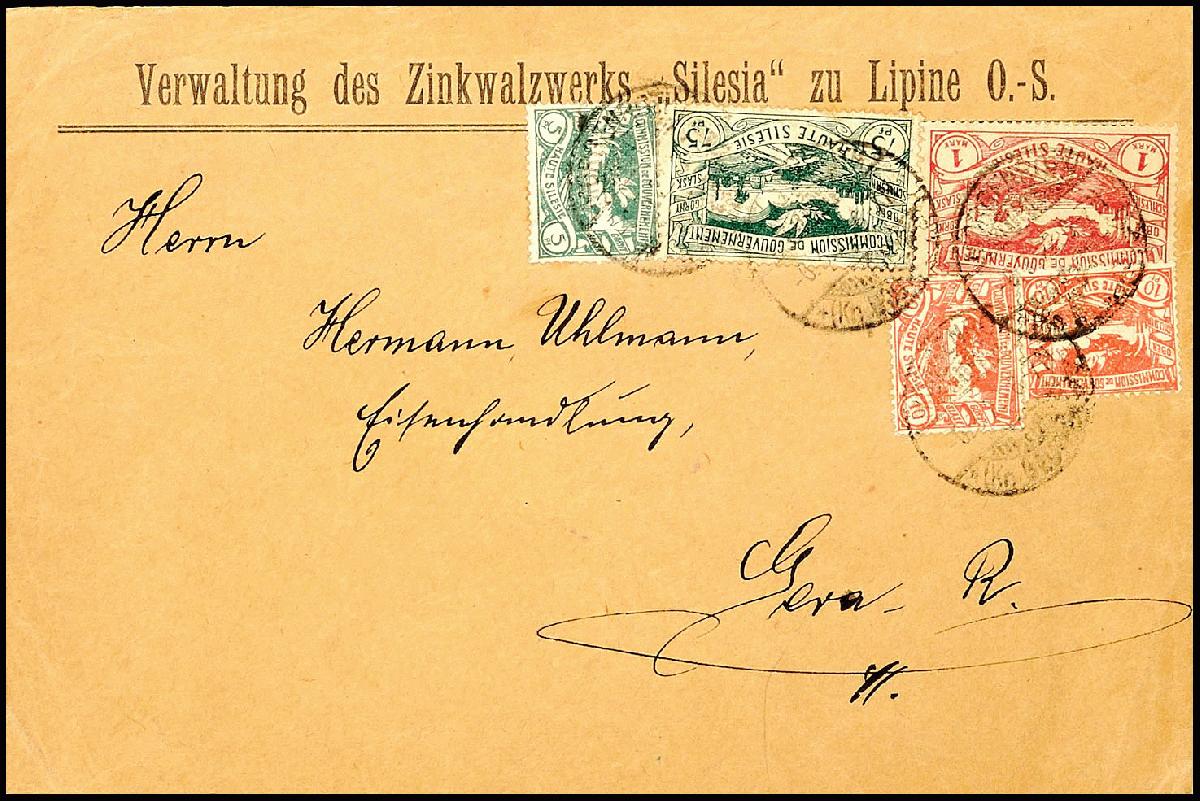 Verwaltung des Zinkwalzwerks „Silesia“ zu Lipine O.-S.
5 HAUTE SILESIE 5
COMMISSION DE GOUVERNEMENT
75 PF HAUTE SILESIE 75 PF
COMMISSION DE GOUVERNEMENT
1 MARK HAUTE SILESIE 1 MARK
COMMISSION DE GOUVERNEMENT
10 HAUTE SILESIE
COMMISSION DE GOUVERNEMENT
HAUTE SILESIE 10
COMMISSION DE GOUVERNEMENT
Herrn
Hermann Uhlmann,
Eisenhandlung,
Gera - R.